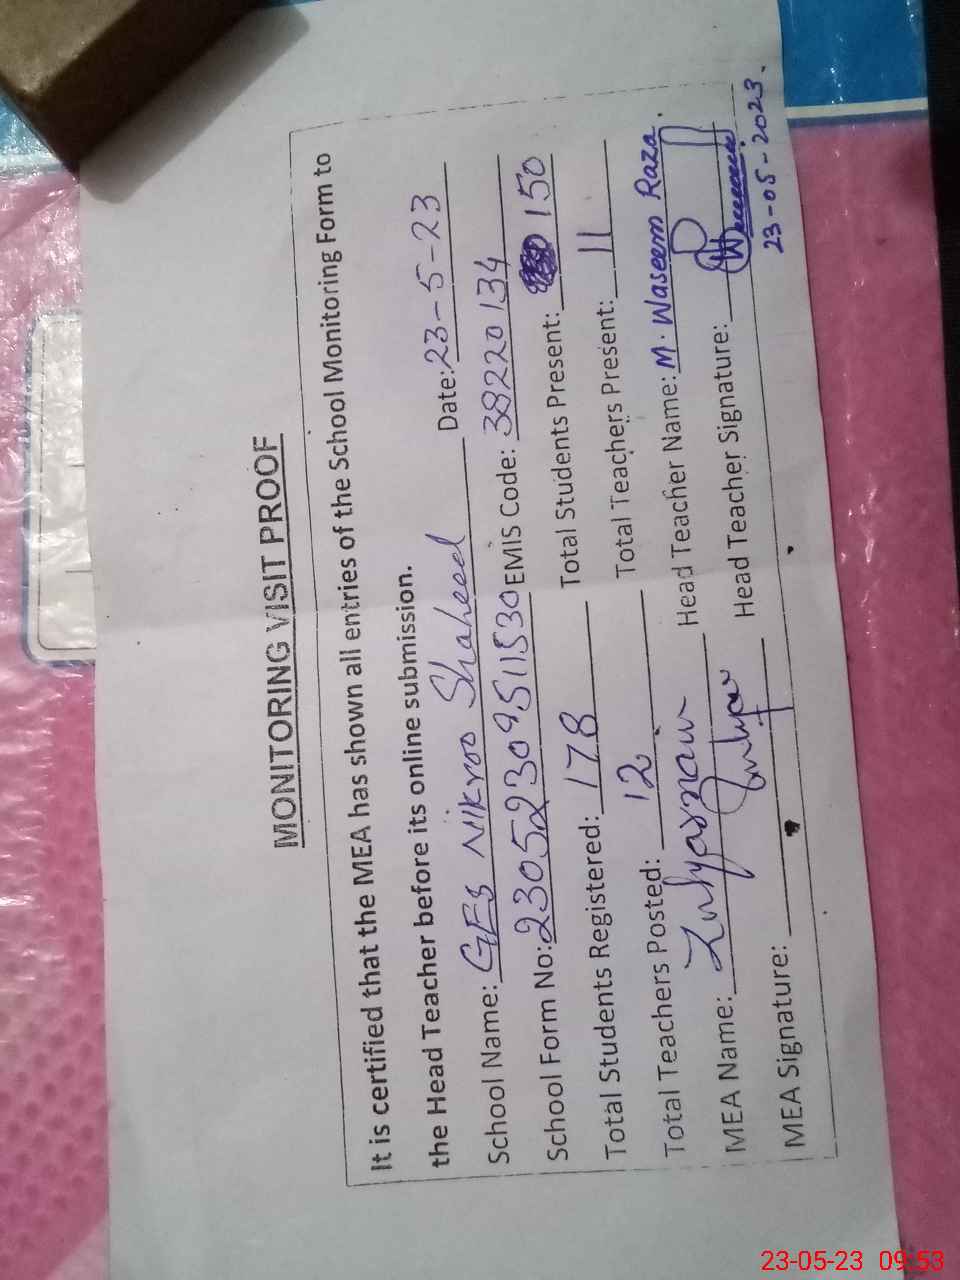 MONITORING VISIT PROOF
It is certified that the MEA has shown all entries of the School Monitoring Form to
the Head Teacher before its online submission.
School Name: GES Nikroo Shaheed Date: 23-5-23
School Form No: 23052309511530 EMIS Code: 38220134
Total Students Registered: 178 Total Students Present: 150
Total Teachers Posted: 12 Total Teachers Present: 11
MEA Name: Head Teacher Name: M. Waseem Raza.
MEA Signature: Head Teacher Signature:
23-05-2023.
23-05-23 09:53